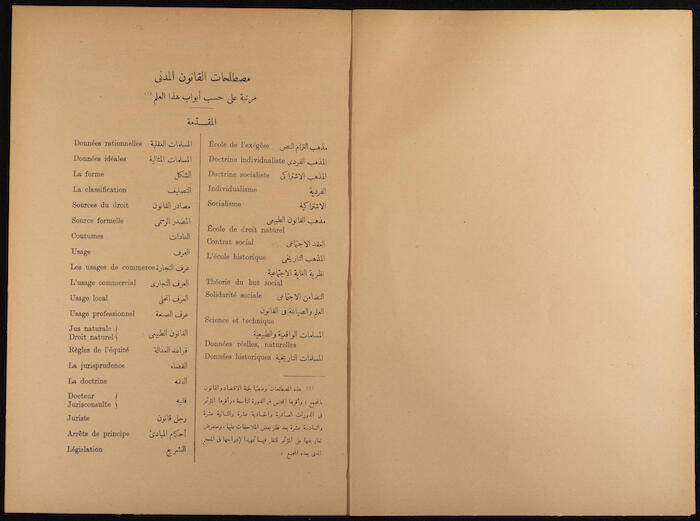 مصطلحات القانون المدنى
مرتبة على حسب أبواب هذا العلم (١)
المقدّمة
École de l'exégèse مذهب التزام النص
Doctrine individualiste المذهب الفردى
Doctrine socialiste المذهب الاشتراكى
Individualisme الفردية
Socialisme الاشتراكية
مذهب القانون الطبيعى
École de droit naturel
Contrat social العقد الاجتماعى
L'école historique المذهب التاريخى
نظرية الغاية الاجتماعية
Théorie du but social
Solidarité sociale التضامن الاجتماعى
العلم والصياغة فى القانون
Science et technique
المسلمات الواقعية والطبيعية
Données réelles, naturelles
Données historiques المسلمات التاريخية
(١) هذه المصطلحات وضعتها لجنة الاقتصاد والقانون
بالمجمع، وأقرها المجلس فى الدورة التاسعة، وأقرها المؤتمر
فى الدورات العاشرة والحادية عشرة والثانية عشرة
والسادسة عشرة بعد نظر بعض الملاحظات عليها، وستعرض
تعاريفها على المؤتمر للنظر فيها تمهيداً لإدراجها فى المعجم
الذى يعده المجمع.
Données rationnelles المسلمات العقلية
Données idéales المسلمات المثالية
La forme الشكل
La classification التصنيف
Sources du droit مصادر القانون
Source formelle المصدر الرسمى
Coutumes العادات
Usage العرف
Les usages de commerce عرف التجارة
L'usage commercial العرف التجارى
Usage local العرف المحلى
Usage professionnel عرف الصنعة
Jus naturale
Droit naturel القانون الطبيعى
Règles de l'équité قواعد العدالة
La jurisprudence القضاء
La doctrine الفقه
Docteur
Jurisconsulte فقيه
Juriste رجل قانون
Arrêts de principe أحكام المبادئ
Législation التشريع